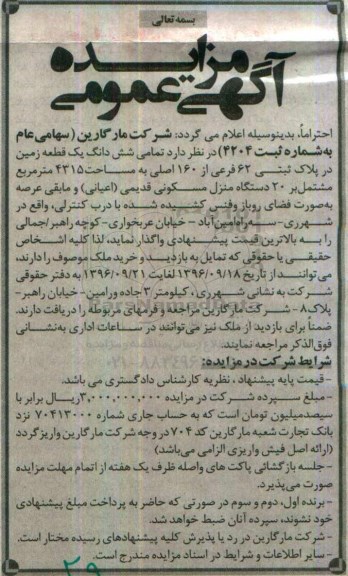 بسمه تعالی
آگهی مزایده
عمومی
احتراماً، بدینوسیله اعلام می گردد: شرکت مارگارین (سهامی عام
به شماره ثبت ۴۲۰۴) در نظر دارد تمامی شش دانگ یک قطعه زمین
در پلاک ثبتی ۶۲ فرعی از ۱۶۰ اصلی به مساحت ۴۳۱۵ مترمربع
مشتمل بر ۲۰ دستگاه منزل مسکونی قدیمی (اعیانی) و مابقی عرصه
به صورت فضای روباز وفنی کشیده شده با درب کنترلی، واقع در
شهرری- سه راه امین آباد - خیابان عربخواری-کوچه راهبر/جمالی
را به بالاترین قیمت پیشنهادی واگذار نماید، لذا کلیه اشخاص
حقیقی یا حقوقی که تمایل به بازدید و خرید ملک موصوف را دارند،
می توانند از تاریخ ۱۳۹۶/۰۹/۱۸ لغایت ۱۳۹۶/۰۹/۲۱ به دفتر حقوقی
شرکت به نشانی شهرری، کیلومتر ۳ جاده ورامین- خیابان راهبر-
پلاک ۸ - شرکت مارگارین مراجعه و فرمهای مربوطه را دریافت دارند.
ضمناً برای بازدید از ملک نیز می توانند در ساعات اداری به نشانی
فوق الذکر مراجعه نمایند.
شرایط شرکت در مزایده:
- قیمت پایه پیشنهاد، نظریه کارشناس دادگستری می باشد.
- مبلغ سپرده شرکت در مزایده ۳,۰۰۰,۰۰۰,۰۰۰ ریال برابر با
سیصدمیلیون تومان است که به حساب جاری شماره ۷۰۴۱۳۰۰۰ نزد
بانک تجارت شعبه مارگارین کد ۷۰۴ در وجه شرکت مارگارین واریز گردد
(ارائه اصل فیش واریزی الزامی می باشد)
- جلسه بازگشائی پاکت های واصله ظرف یک هفته از اتمام مهلت مزایده
صورت می پذیرد.
- برنده اول، دوم و سوم در صورتی که حاضر به پرداخت مبلغ پیشنهادی
خود نشوند، سپرده آنان ضبط خواهد شد.
- شرکت مارگارین در رد یا پذیرش کلیه پیشنهادهای رسیده مختار است.
- سایر اطلاعات و شرایط در اسناد مزایده مندرج است.
۲۹